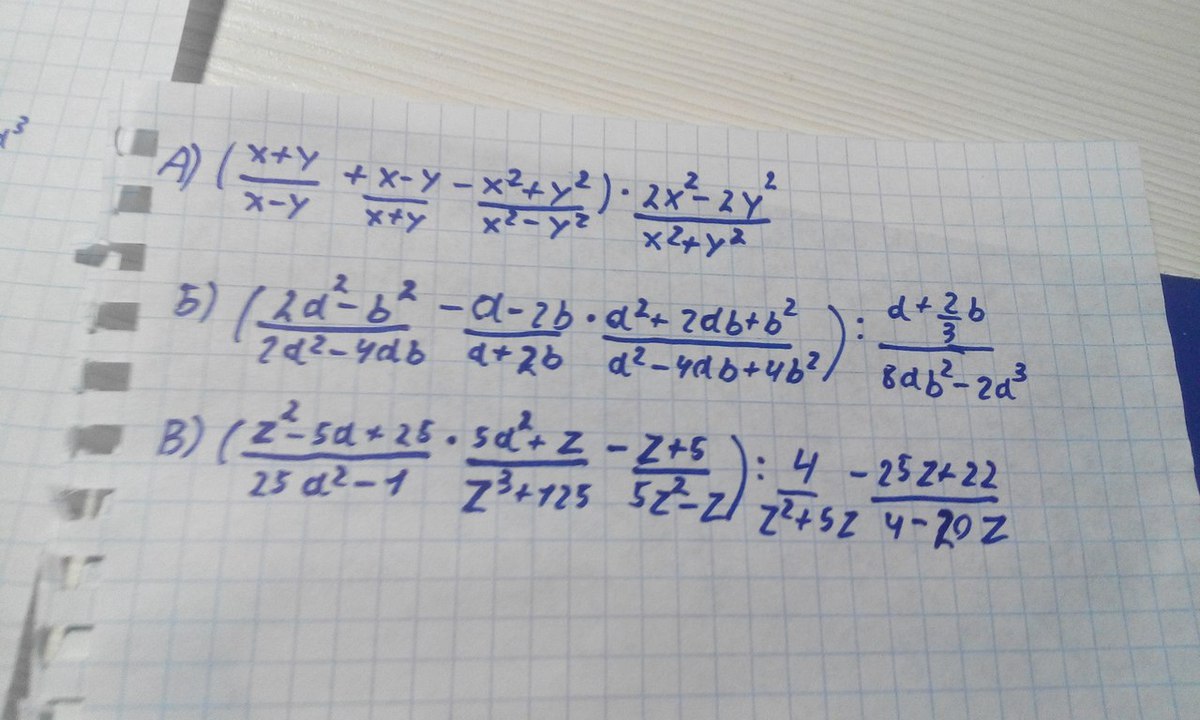 x³
А) ((x+y)/(x-y) + (x-y)/(x+y) - (x²+y²)/(x²-y²)) · (2x²-2y²)/(x²+y²)
Б) ((2a²-b²)/(2a²-4ab) - (a-2b)/(a+2b) · (a²+2ab+b²)/(a²-4ab+4b²)) : (a+2/3b)/(8ab²-2a³)
В) ((z²-5a+25)/(25a²-1) · (5a²+z)/(z³+125) - (z+5)/(5z²-z)) : 4/(z²+5z) - (25z+22)/(4-20z)